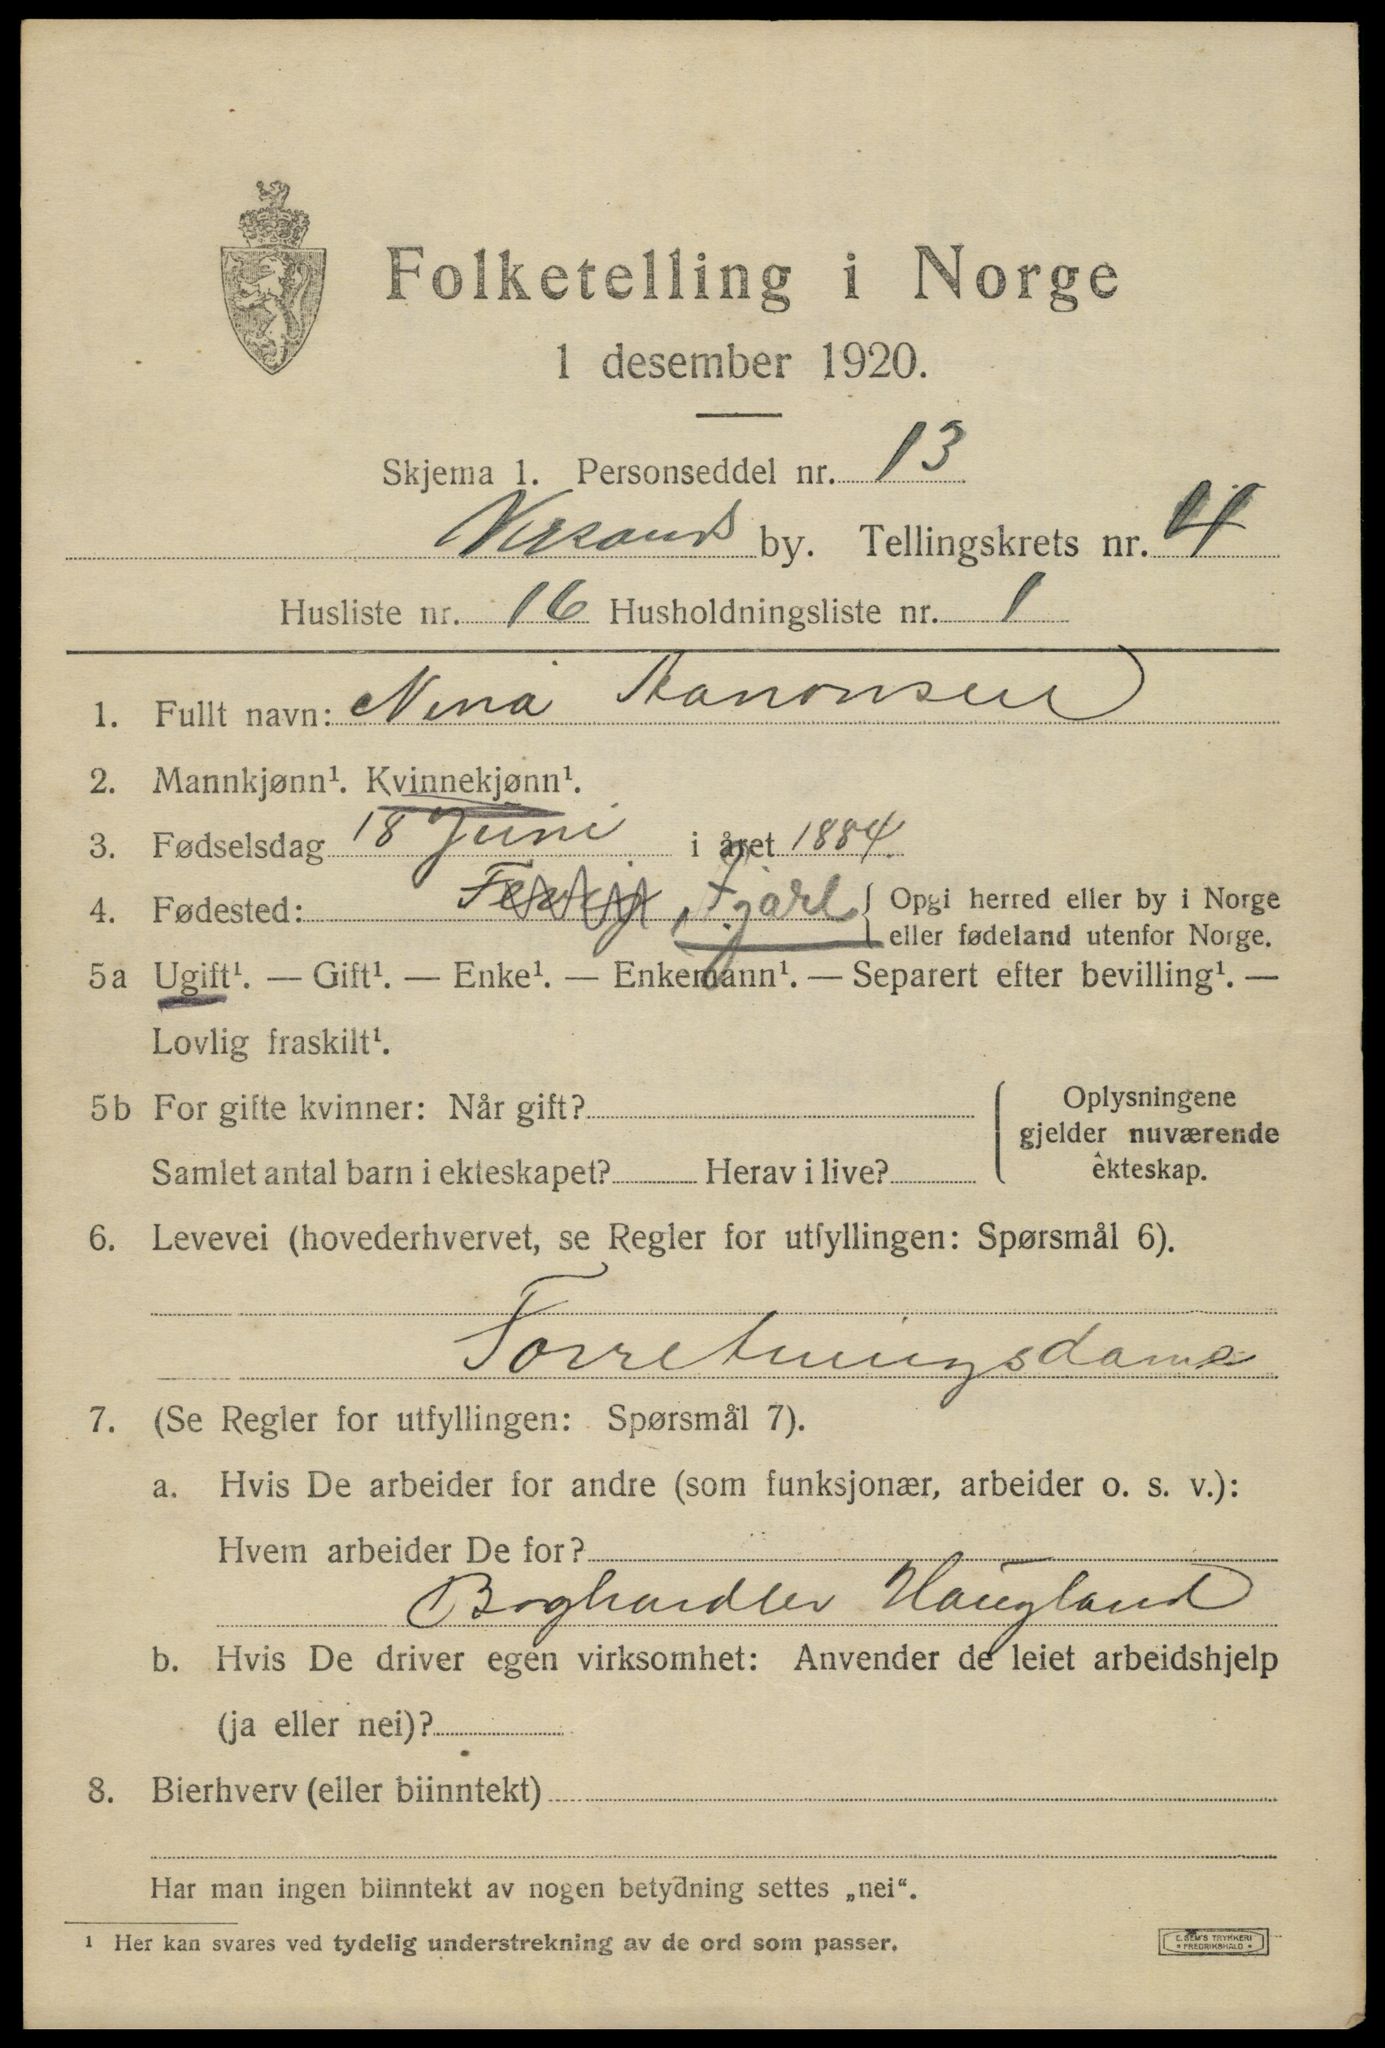 Folketelling i Norge
1 desember 1920.
Skjema 1. Personseddel nr. 13
by. Tellingskrets nr. 4
Husliste nr. 16 Husholdningsliste nr. 1
1. Fullt navn: Nina Aanonsen
2. Mannkjønn¹. Kvinnekjønn¹.
3. Fødselsdag 18 Juni i året 1884.
4. Fødested: Fjære { Opgi herred eller by i Norge
eller fødeland utenfor Norge.
5a Ugift¹. — Gift¹. — Enke¹. — Enkemann¹. — Separert efter bevilling¹. —
Lovlig fraskilt¹.
5b For gifte kvinner: Når gift?
Samlet antal barn i ekteskapet? Herav i live?
Oplysningene
gjelder nuværende
ekteskap.
6. Levevei (hovederhvervet, se Regler for utfyllingen: Spørsmål 6).
Forretningsdame
7. (Se Regler for utfyllingen: Spørsmål 7).
a. Hvis De arbeider for andre (som funksjonær, arbeider o. s. v.):
Hvem arbeider De for?
Boghandler Haugland
b. Hvis De driver egen virksomhet: Anvender de leiet arbeidshjelp
(ja eller nei)?
8. Bierhverv (eller biinntekt)
Har man ingen biinntekt av nogen betydning settes „nei“.
¹ Her kan svares ved tydelig understrekning av de ord som passer.
C. SEM'S TRYKKERI
* FREDRIKSHALD *